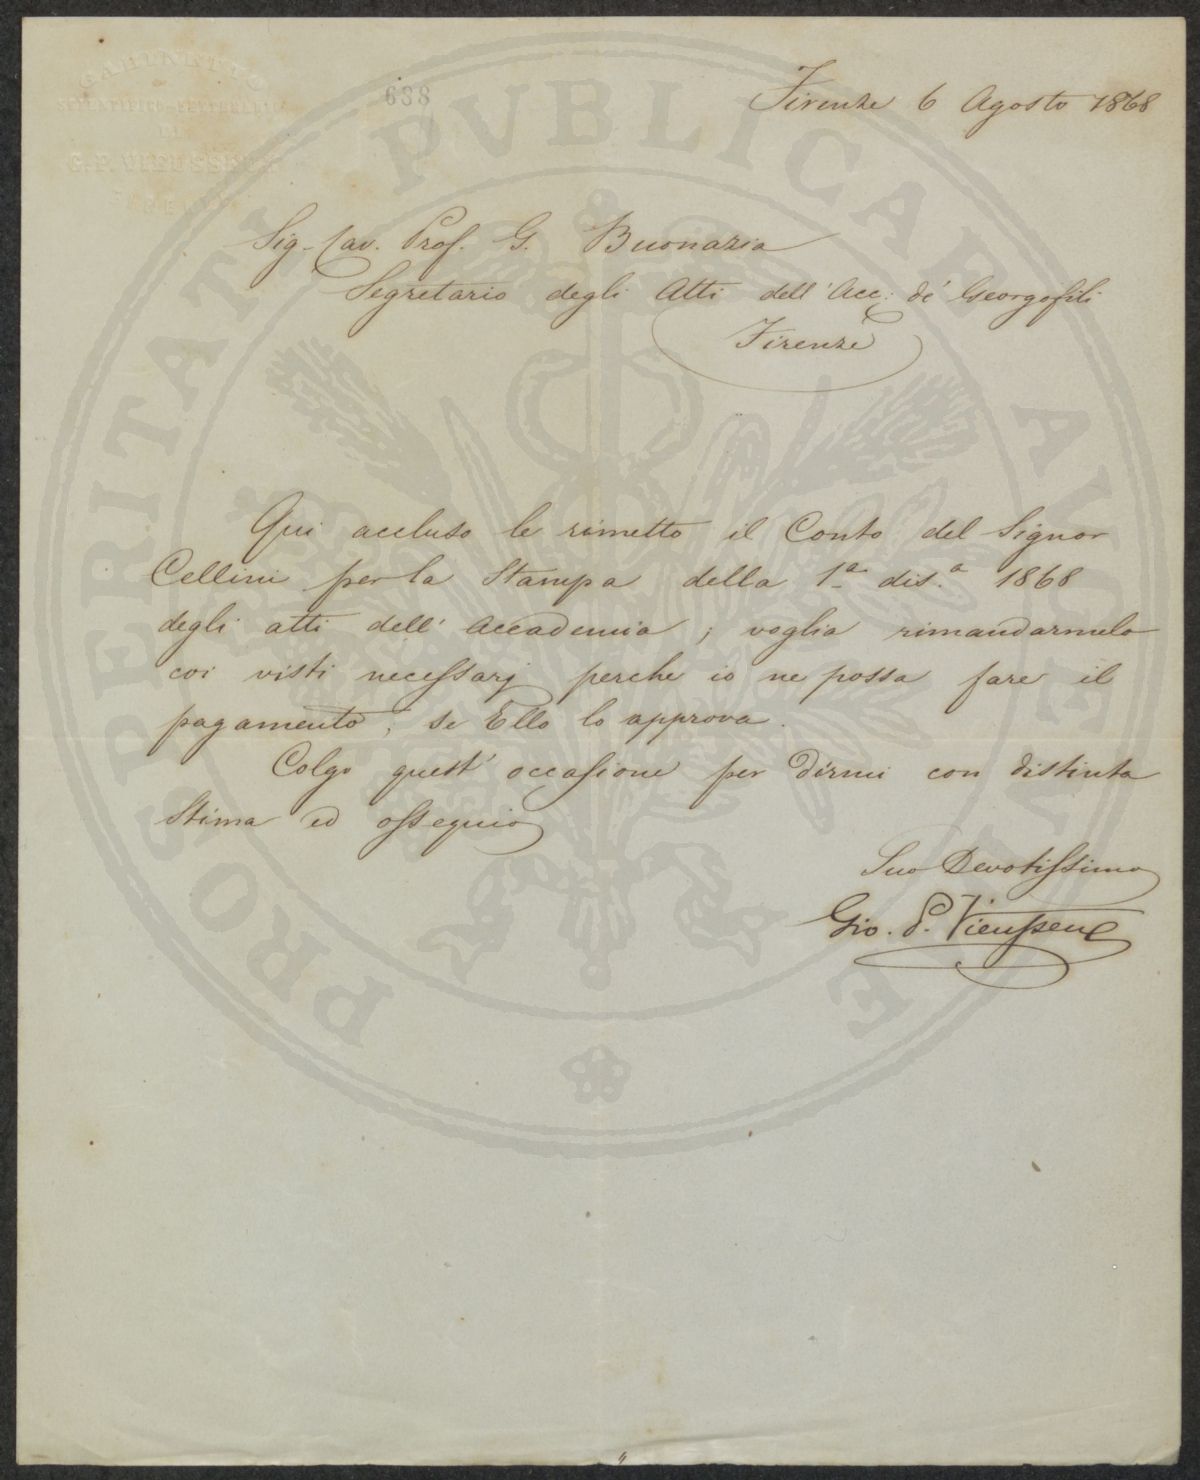 GABINETTO
SCIENTIFICO-LETTERARIO
DI
G. P. VIEUSSEUX
FIRENZE
638
PROSPERITATI PVBLICAE AVGENDAE
Firenze 6 Agosto 1868
Sig. Cav. Prof. G. Buonazia
Segretario degli Atti dell'Acc: de' Georgofili
Firenze
Qui accluso le rimetto il Conto del Signor
Cellini per la Stampa della 1ª dis.ª 1868
degli atti dell'Accademia; voglia rimandarmelo
coi visti necessarj perche io ne possa fare il
pagamento, se Ella lo approva.
Colgo quest'occasione per dirmi con distinta
Stima ed ossequio
Suo Devotissimo
Gio. P. Vieusseux